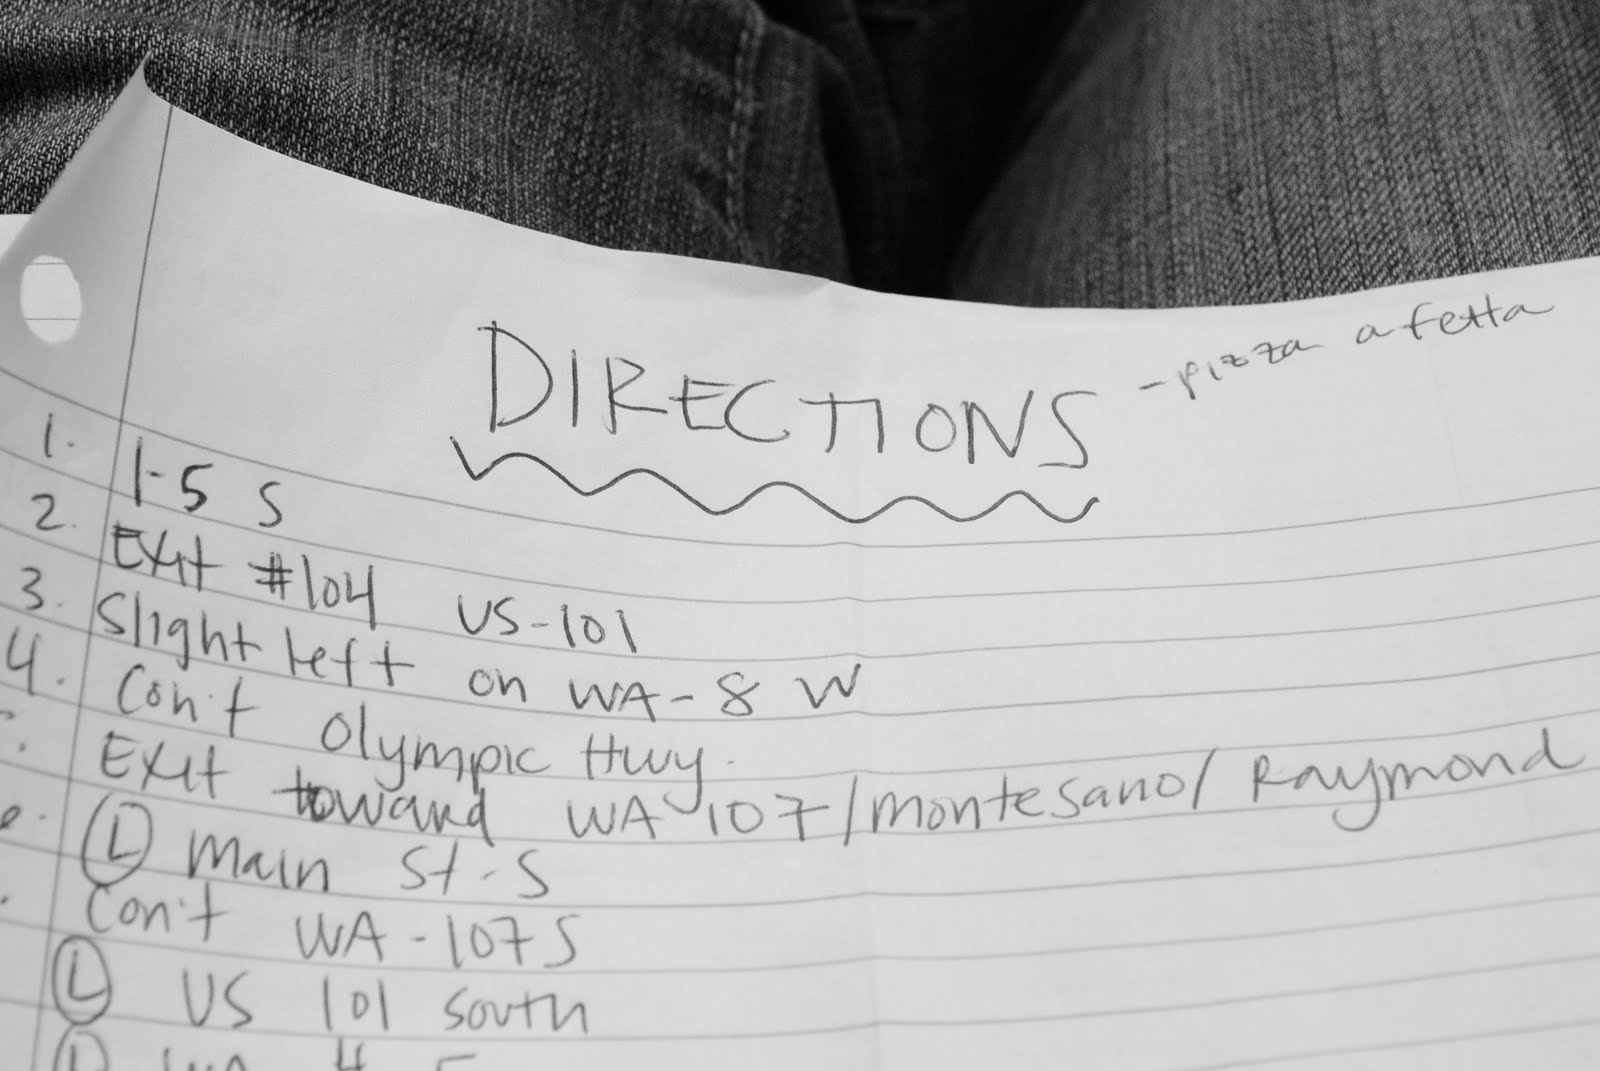 DIRECTIONS - pizza a fetta
1. I-5 S
2. Exit #104 US-101
3. Slight left on WA-8 W
4. Con't Olympic Hwy.
Exit toward WA 107/Montesano/Raymond
(L) Main St. S
Con't WA-107 S
(L) US 101 South